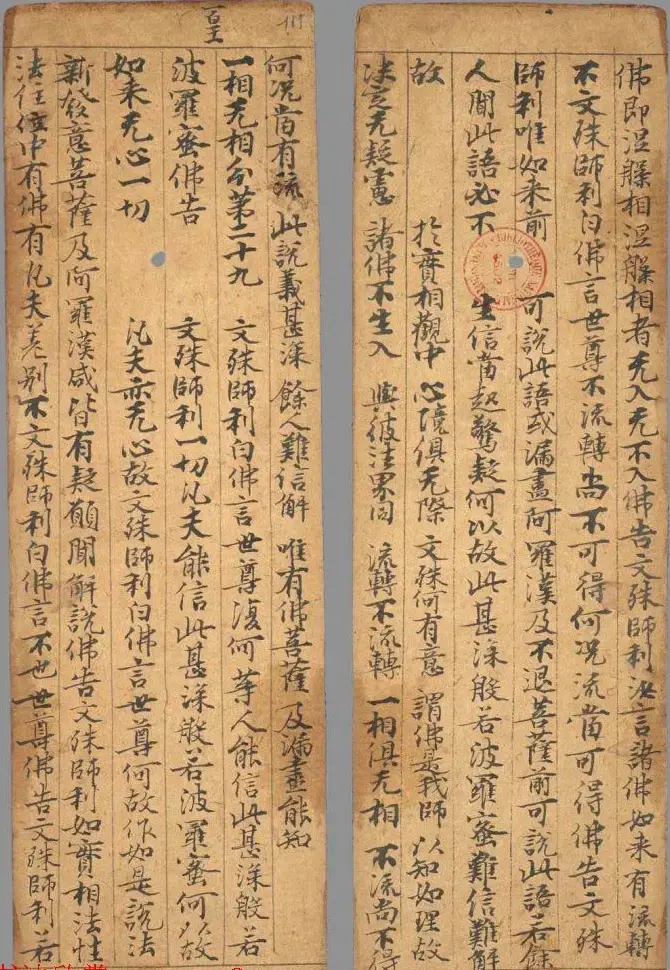 佛即涅槃相涅槃相者无入无不入佛告文殊師利汝言諸佛如来有流轉
不文殊師利白佛言世尊不流轉尚不可得何况流當可得佛告文殊
師利唯如来前 可說此語或漏盡阿羅漢及不退菩薩前可說此語若餘
人聞此語必不 生信當起驚疑何以故此甚深般若波羅蜜難信難解
故 於實相觀中 心境俱无際 文殊何有意 謂佛是我師 以知如理故
决定无疑慮 諸佛不生入 與彼法界同 流轉不流轉 一相俱无相 不流尚不得
何况當有流 此說義甚深 餘人難信解 唯有佛菩薩 及漏盡能知
一相无相分第二十九 文殊師利白佛言世尊復何等人能信此甚深般若
波羅蜜佛告 文殊師利一切凡夫能信此甚深般若波羅蜜何以故
如来无心一切 凡夫亦无心故文殊師利白佛言世尊何故作如是說法
新發意菩薩及阿羅漢咸皆有疑願聞解說佛告文殊師利如實相法性
法住位中有佛有凡夫差别不文殊師利白佛言不也世尊佛告文殊師利若